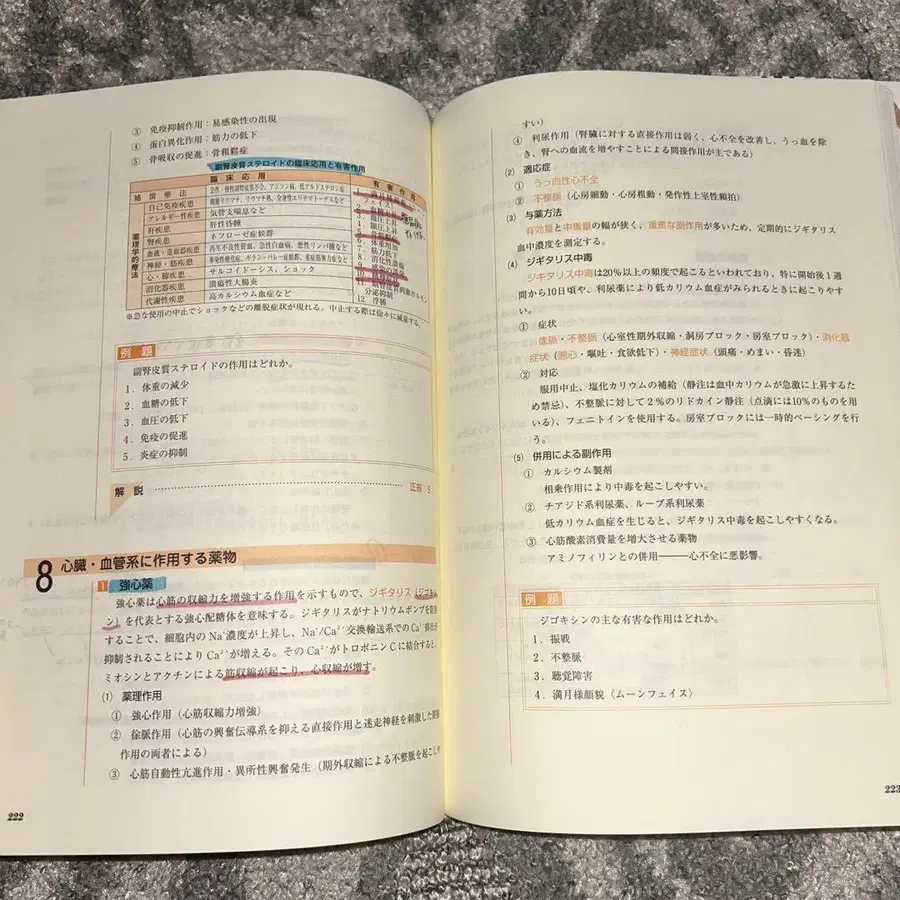 ③ 免疫抑制作用：易感染性の出現
④ 蛋白異化作用：筋力の低下
⑤ 骨吸収の促進：骨粗鬆症
副腎皮質ステロイドの臨床応用と有害作用
臨床応用
有害作用
補償療法
急性・慢性副腎皮質不全、アジソン病、低アルドステロン症
薬理学的療法
自己免疫疾患
関節リウマチ、リウマチ熱、全身性エリテマトーデスなど
アレルギー性疾患
気管支喘息など
肝疾患
肝性昏睡
腎疾患
ネフローゼ症候群
血液・造血器疾患
再生不良性貧血、急性白血病、悪性リンパ腫など
神経・筋疾患
多発性硬化症、ギラン・バレー症候群、重症筋無力症など
心・肺疾患
サルコイドーシス、ショック
消化器疾患
潰瘍性大腸炎
代謝性疾患
高カルシウム血症など
1. 満月様顔貌
4. 血圧上昇
6. 体重増加
7. 筋力低下
8. 消化性潰瘍
分泌抑制
12. 浮腫
※急な使用の中止でショックなどの離脱症状が現れる。中止する際は徐々に減量する。
例題
副腎皮質ステロイドの作用はどれか。
1．体重の減少
2．血糖の低下
3．血圧の低下
4．免疫の促進
5．炎症の抑制
解説 正答 5
8 心臓・血管系に作用する薬物
1 強心薬
強心薬は心筋の収縮力を増強する作用を示すもので、ジギタリス（ジゴキシ
ン）を代表とする強心配糖体を意味する。ジギタリスがナトリウムポンプを
することで、細胞内のNa⁺濃度が上昇し、Na⁺/Ca²⁺交換輸送系でのCa²⁺排出が
抑制されることによりCa²⁺が増える。そのCa²⁺がトロポニンCに結合すると、
ミオシンとアクチンによる筋収縮が起こり、心収縮が増す。
⑴ 薬理作用
① 強心作用（心筋収縮力増強）
② 徐脈作用（心筋の興奮伝導系を抑える直接作用と迷走神経を刺激した間接
作用の両者による）
③ 心筋自動性亢進作用・異所性興奮発生（期外収縮による不整脈を起こしや
222
すい）
④ 利尿作用（腎臓に対する直接作用は弱く、心不全を改善し、うっ血を除
き、腎への血流を増やすことによる間接作用が主である）
⑵ 適応症
① うっ血性心不全
② 不整脈（心房細動・心房粗動・発作性上室性頻拍）
⑶ 与薬方法
有効量と中毒量の幅が狭く、重篤な副作用が多いため、定期的にジギタリス
血中濃度を測定する。
⑷ ジギタリス中毒
ジギタリス中毒は20％以上の頻度で起こるといわれており、特に開始後1週
間から10日頃や、利尿薬により低カリウム血症がみられるときに起こりやす
い。
① 症状
徐脈・不整脈（心室性期外収縮・洞房ブロック・房室ブロック）・消化器
症状（悪心・嘔吐・食欲低下）・神経症状（頭痛・めまい・昏迷）
② 対応
服用中止、塩化カリウムの補給（静注は血中カリウムが急激に上昇するた
め禁忌）、不整脈に対して2％のリドカイン静注（点滴には10％のものを用
いる）、フェニトインを使用する。房室ブロックには一時的ペーシングを行
う。
⑸ 併用による副作用
① カルシウム製剤
相乗作用により中毒を起こしやすい。
② チアジド系利尿薬、ループ系利尿薬
低カリウム血症を生じると、ジギタリス中毒を起こしやすくなる。
③ 心筋酸素消費量を増大させる薬物
アミノフィリンとの併用――心不全に悪影響。
例題
ジゴキシンの主な有害な作用はどれか。
1．振戦
2．不整脈
3．聴覚障害
4．満月様顔貌（ムーンフェイス）
223